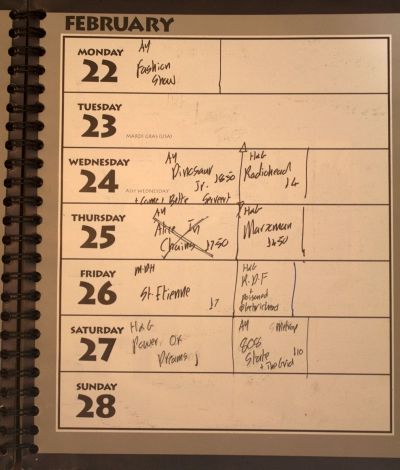 FEBRUARY
MONDAY
22
AY
Fashion
Show
TUESDAY
23
MARDI GRAS (USA)
WEDNESDAY
24
ASH WEDNESDAY
AY
Dinosaur
Jr. £8.50
+ Come + Bettie Serveert
H&G
Radiohead
£4
THURSDAY
25
AY
Alice In
Chains £7.50
H&G
Marxman
£4.50
FRIDAY
26
MDH
St. Etienne
£7
H&G
M.D.F
+
poisoned
electrickhead
SATURDAY
27
H&G
Power Of
Dreams
AY
808
State £10
+ The Grid
SUNDAY
28